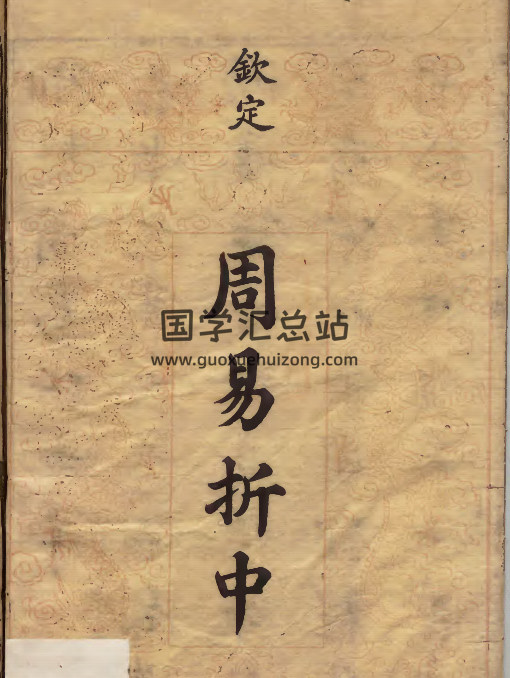 欽定
周易折中
国学汇总站
www.guoxuehuizong.com